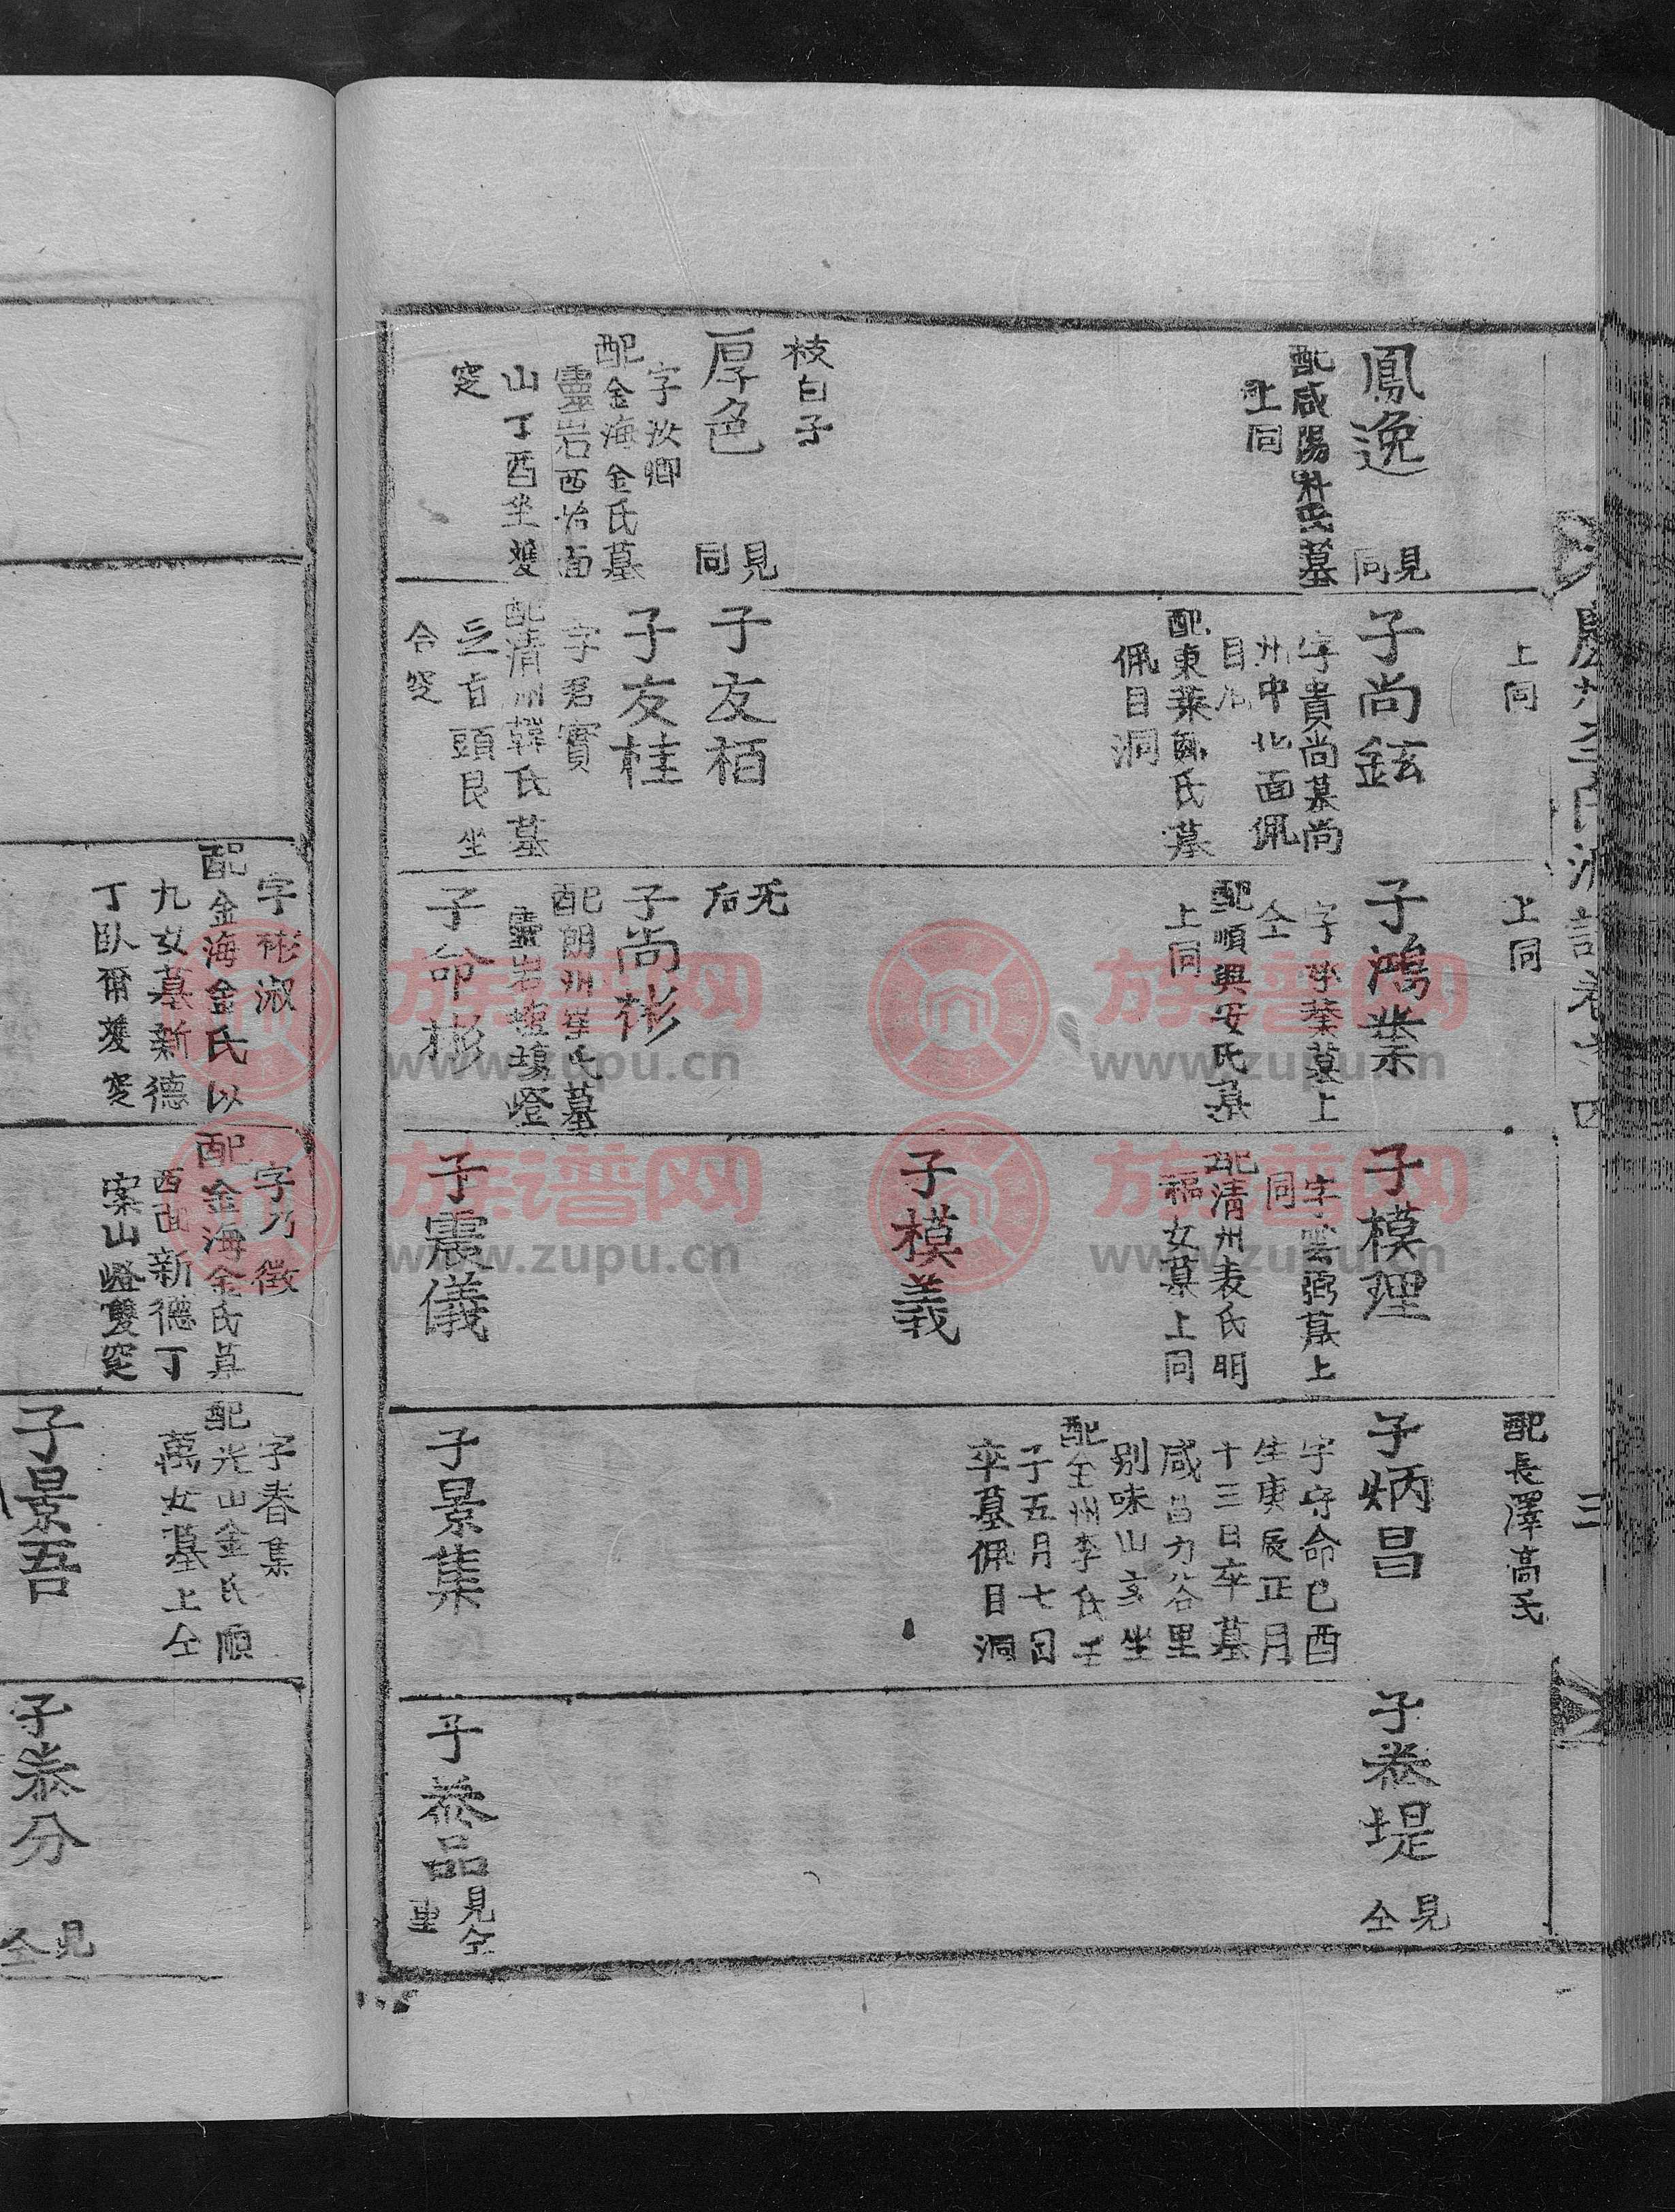 上同
上同
配長澤高氏
三
鳳逸
見同
配咸陽朴氏墓
上同
子尚鉉
字貴尚墓尚
州中北面佩
目洞
配東萊鄭氏墓
佩目洞
子鴻業
墓上
仝
配順興安氏墓
上同
子模理
字雲弼墓上
同
配清州表氏明
福女墓上同
子模義
子炳昌
字守命己酉
生庚辰正月
十三日卒墓
咸昌力谷里
別味山亥坐
配全州李氏壬
子五月七日
卒墓佩目洞
子泰堤
見仝
枝白子
厚色
見同
字汝卿
配金海金氏墓
靈岩西始面
山丁酉坐雙
窆
子友栢
无后
子友桂
字君實
配清州韓氏墓
頭艮坐
合窆
子尚彬
配朗州崔氏墓
靈岩
子命彬
子震儀
子景集
子泰品
見仝
字彬淑
配金海金氏以
九女墓新德
丁臥爾雙窆
字乃徵
配金海金氏墓
西面新德丁
案山嶝雙窆
字春集
配光山金氏順
萬女墓上仝
子景吾
子泰分
見仝
族谱网
www.zupu.cn
族谱网
www.zupu.cn
族谱网
www.zupu.cn
族谱网
www.zupu.cn